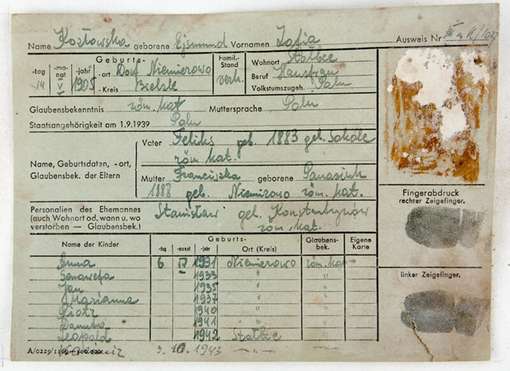 Name Kozłowska geborene Ejsmund Vornamen Zofia Ausweis Nr.
Geburts- Famil.-Stand Wohnort Stołbce
-tag -monat -jahr -ort Dorf Niemirowo verh. Beruf Hausfrau
14 V 1905 -Kreis Bielsk Volkstumszugeh. Poln
Glaubensbekenntnis röm. kat Muttersprache Poln
Staatsangehörigkeit am 1.9.1939 Poln
Name, Geburtsdaten, -ort, Glaubensbek. der Eltern
Vater Feliks geb. 1883 geb. Sokole
röm kat.
Mutter Franciszka geborene Panasiuk
1888 geb. Niemirowo röm. kat.
Fingerabdruck
rechter Zeigefinger.
Personalien des Ehemannes Stanisław geb. Konstantynów
(auch Wohnort od. wann u. wo
verstorben – Glaubensbek.) röm. kat.
Name der Kinder Geburts- Glaubens-bek. Eigene Karte
-tg -monat -jahr Ort (Kreis)
Anna 6 IV 1931 Niemirowo röm. kat
Genowefa 1933 " "
Jan 1935 " "
Marianna 1937 " "
linker Zeigefinger.
Piotr 1940 " "
1941 " "
Leopold 1942 Stołbce "
1943